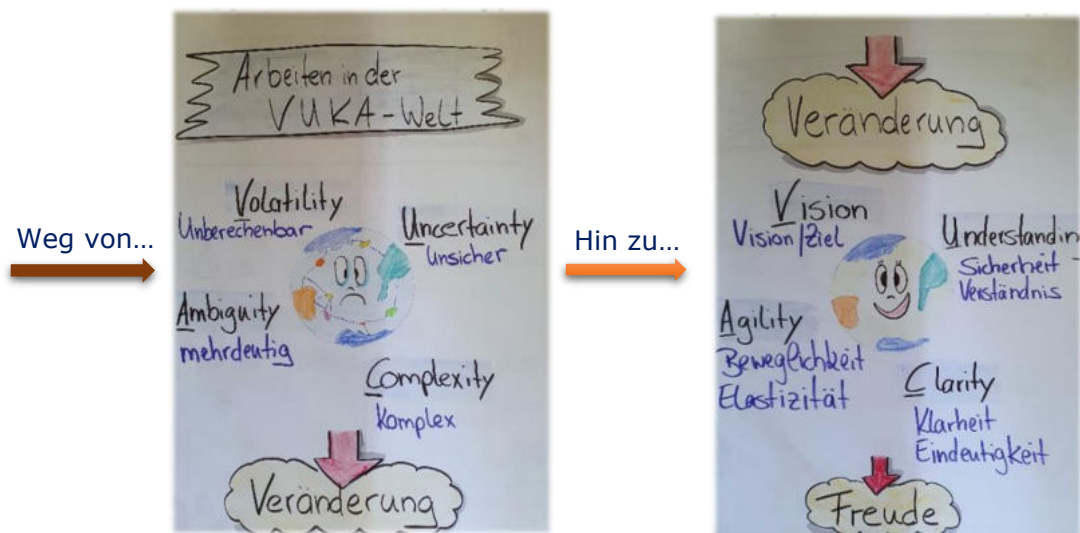 Weg von...
Arbeiten in der
VUKA-Welt
Volatility
Unberechenbar
Uncertainty
Unsicher
Ambiguity
mehrdeutig
Complexity
Komplex
Veränderung
Hin zu...
Veränderung
Vision
Vision/Ziel
Understandin
Sicherheit
Verständnis
Agility
Beweglichkeit
Elastizität
Clarity
Klarheit
Eindeutigkeit
Freude